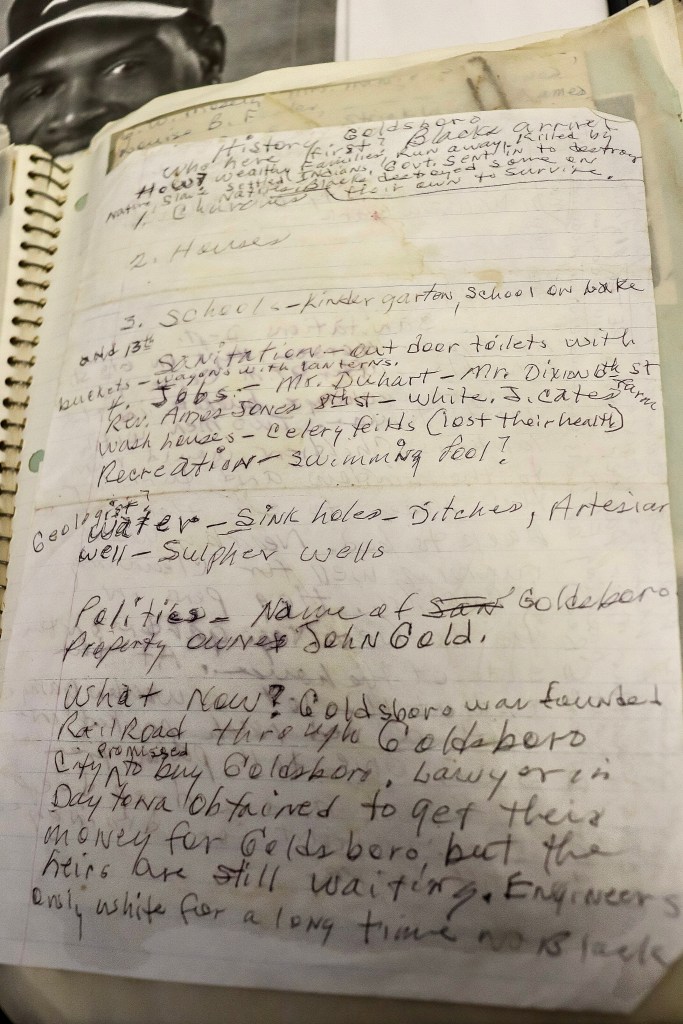 Louise B. F
Goldsboro
History first? Blacks arrive?
Who here Families, Run away, Killed by
How? wealthy Indians, Govt. sent in to destroy
Native slave settled Blacks destroyed some on
1. Churches their own to survive.
2. Houses
3. School - Kindergarton, School on Lake
and 13th
Sanitation - out door toilets with
buckets - wagons with lanterns.
4. Jobs - Mr. Duhart - Mr. Dixion 6th st
Rev. Amos Jones 8th st - white. J. cates Farm
Wash houses - Celery feilds (lost their health)
Recreation - Swimming Pool?
Geologist?
Water - Sink holes - Ditches, Artesian
well - Sulpher wells
Politics - Name of San Goldsboro
Property owner John Gold.
What Now? Goldsboro was founded
RailRoad through Goldsboro
City Promissed to buy Goldsboro. Lawyer in
Daytona obtained to get their
money for Goldsboro, but the
heirs are still waiting. Engineers
only white for a long time no Black